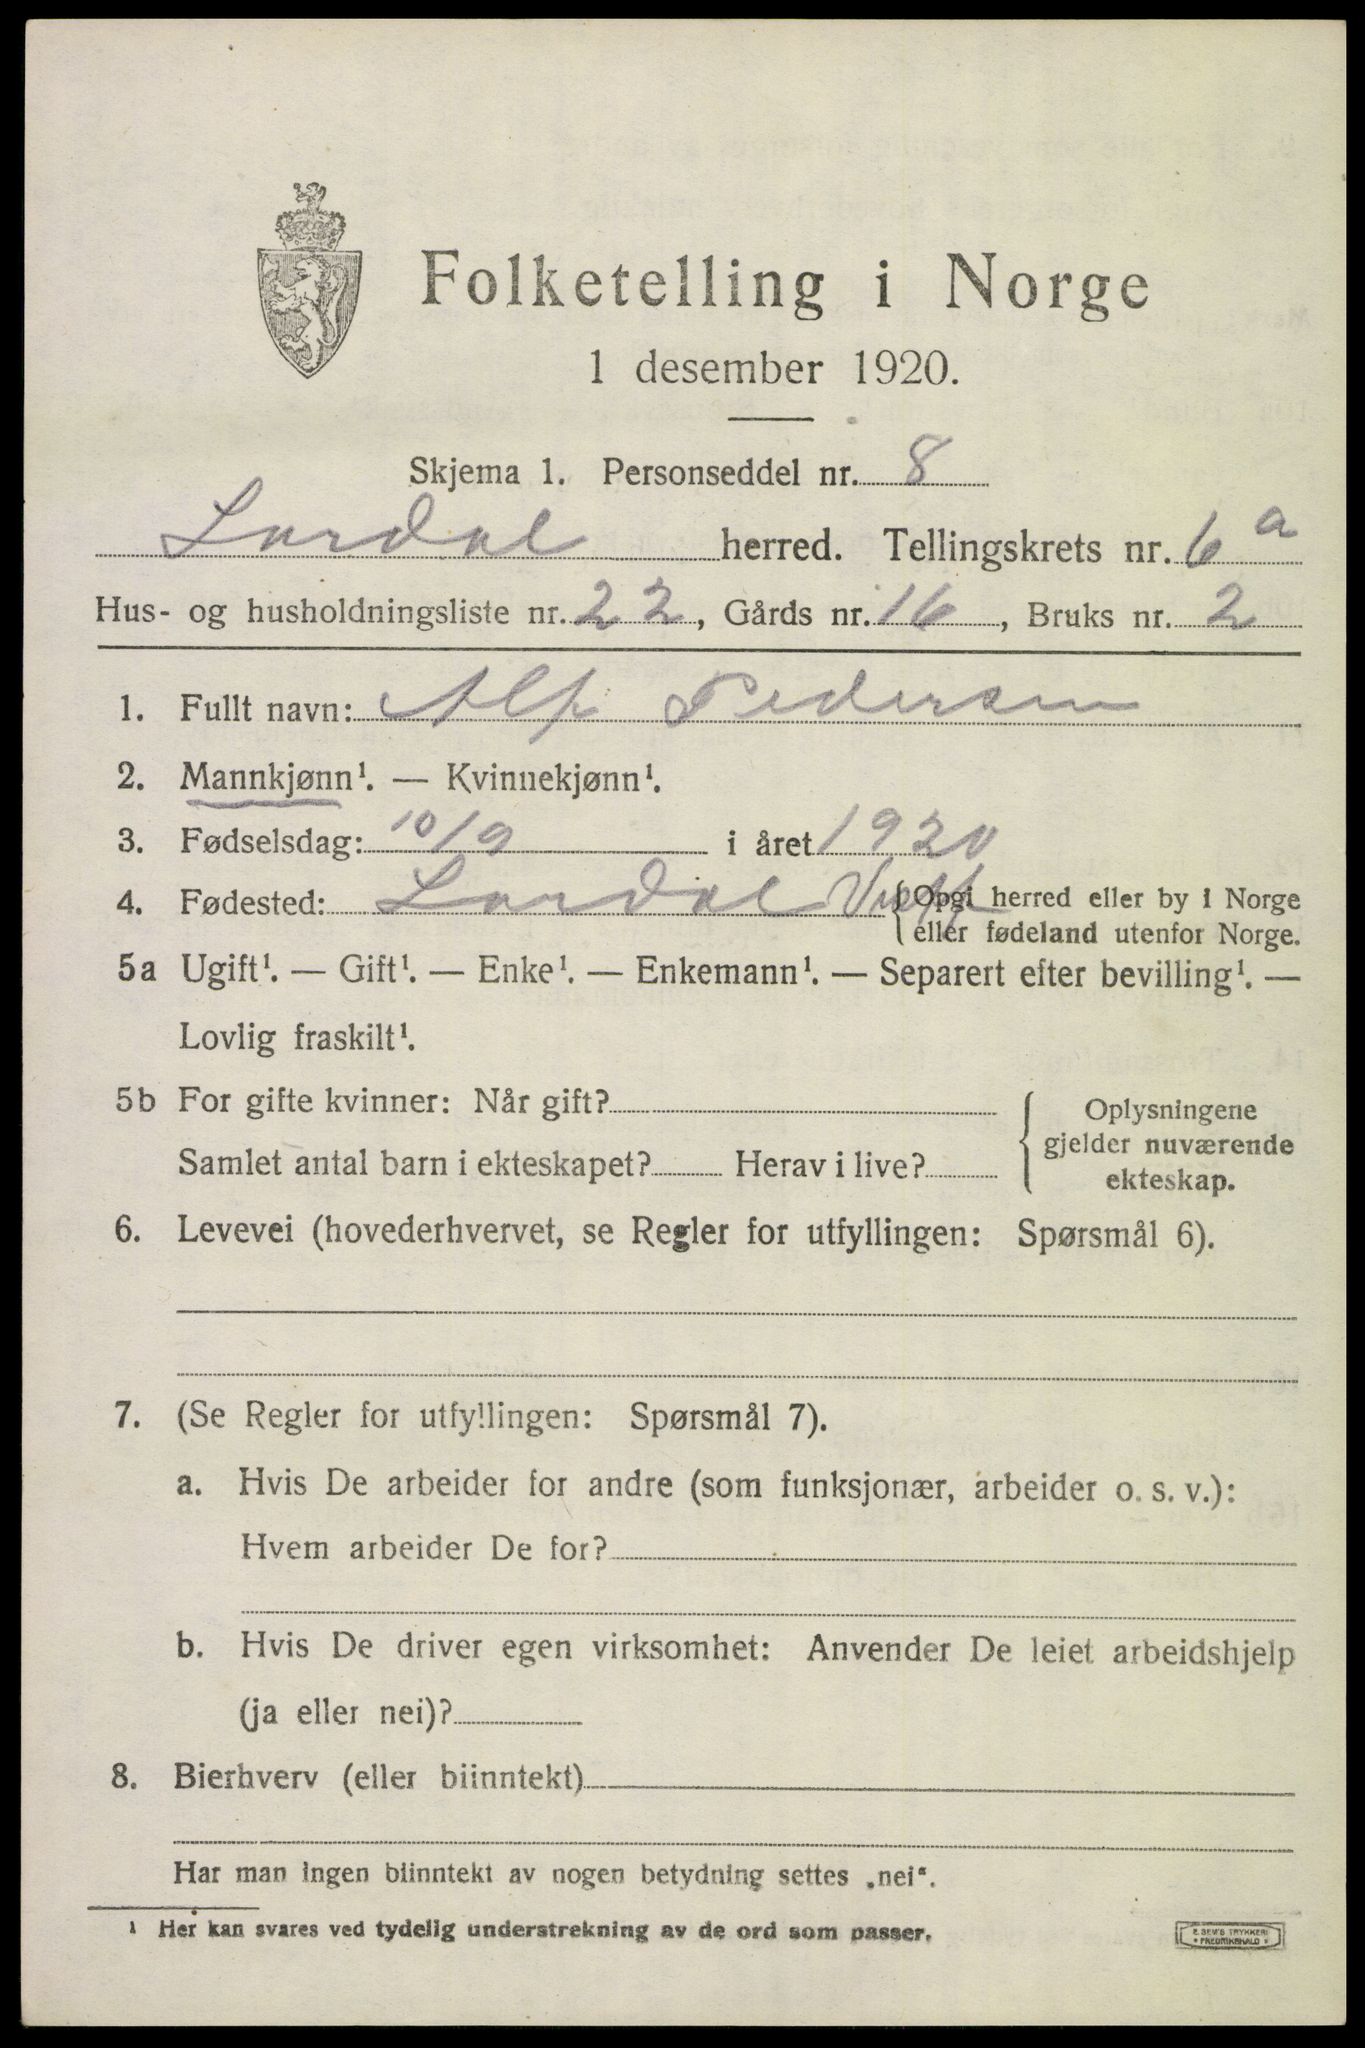 Folketelling i Norge
1 desember 1920.
Skjema 1. Personseddel nr. 8
Lardal herred. Tellingskrets nr. 6a
Hus- og husholdningsliste nr. 22, Gårds nr. 16, Bruks nr. 2
1. Fullt navn: Alf Pedersen
2. Mannkjønn¹. — Kvinnekjønn¹.
3. Fødselsdag: 10/9 i året 1920
4. Fødested: Lardal Vestf {Opgi herred eller by i Norge
eller fødeland utenfor Norge.
5a Ugift¹. — Gift¹. — Enke¹. — Enkemann¹. — Separert efter bevilling¹. —
Lovlig fraskilt¹.
5b For gifte kvinner: Når gift?
Samlet antal barn i ekteskapet? Herav i live?
Oplysningene
gjelder nuværende
ekteskap.
6. Levevei (hovederhvervet, se Regler for utfyllingen: Spørsmål 6).
7. (Se Regler for utfyllingen: Spørsmål 7).
a. Hvis De arbeider for andre (som funksjonær, arbeider o. s. v.):
Hvem arbeider De for?
b. Hvis De driver egen virksomhet: Anvender De leiet arbeidshjelp
(ja eller nei)?
8. Bierhverv (eller biinntekt)
Har man ingen biinntekt av nogen betydning settes „nei“.
¹ Her kan svares ved tydelig understrekning av de ord som passer.
E. SEM'S TRYKKERI
FREDRIKSHALD